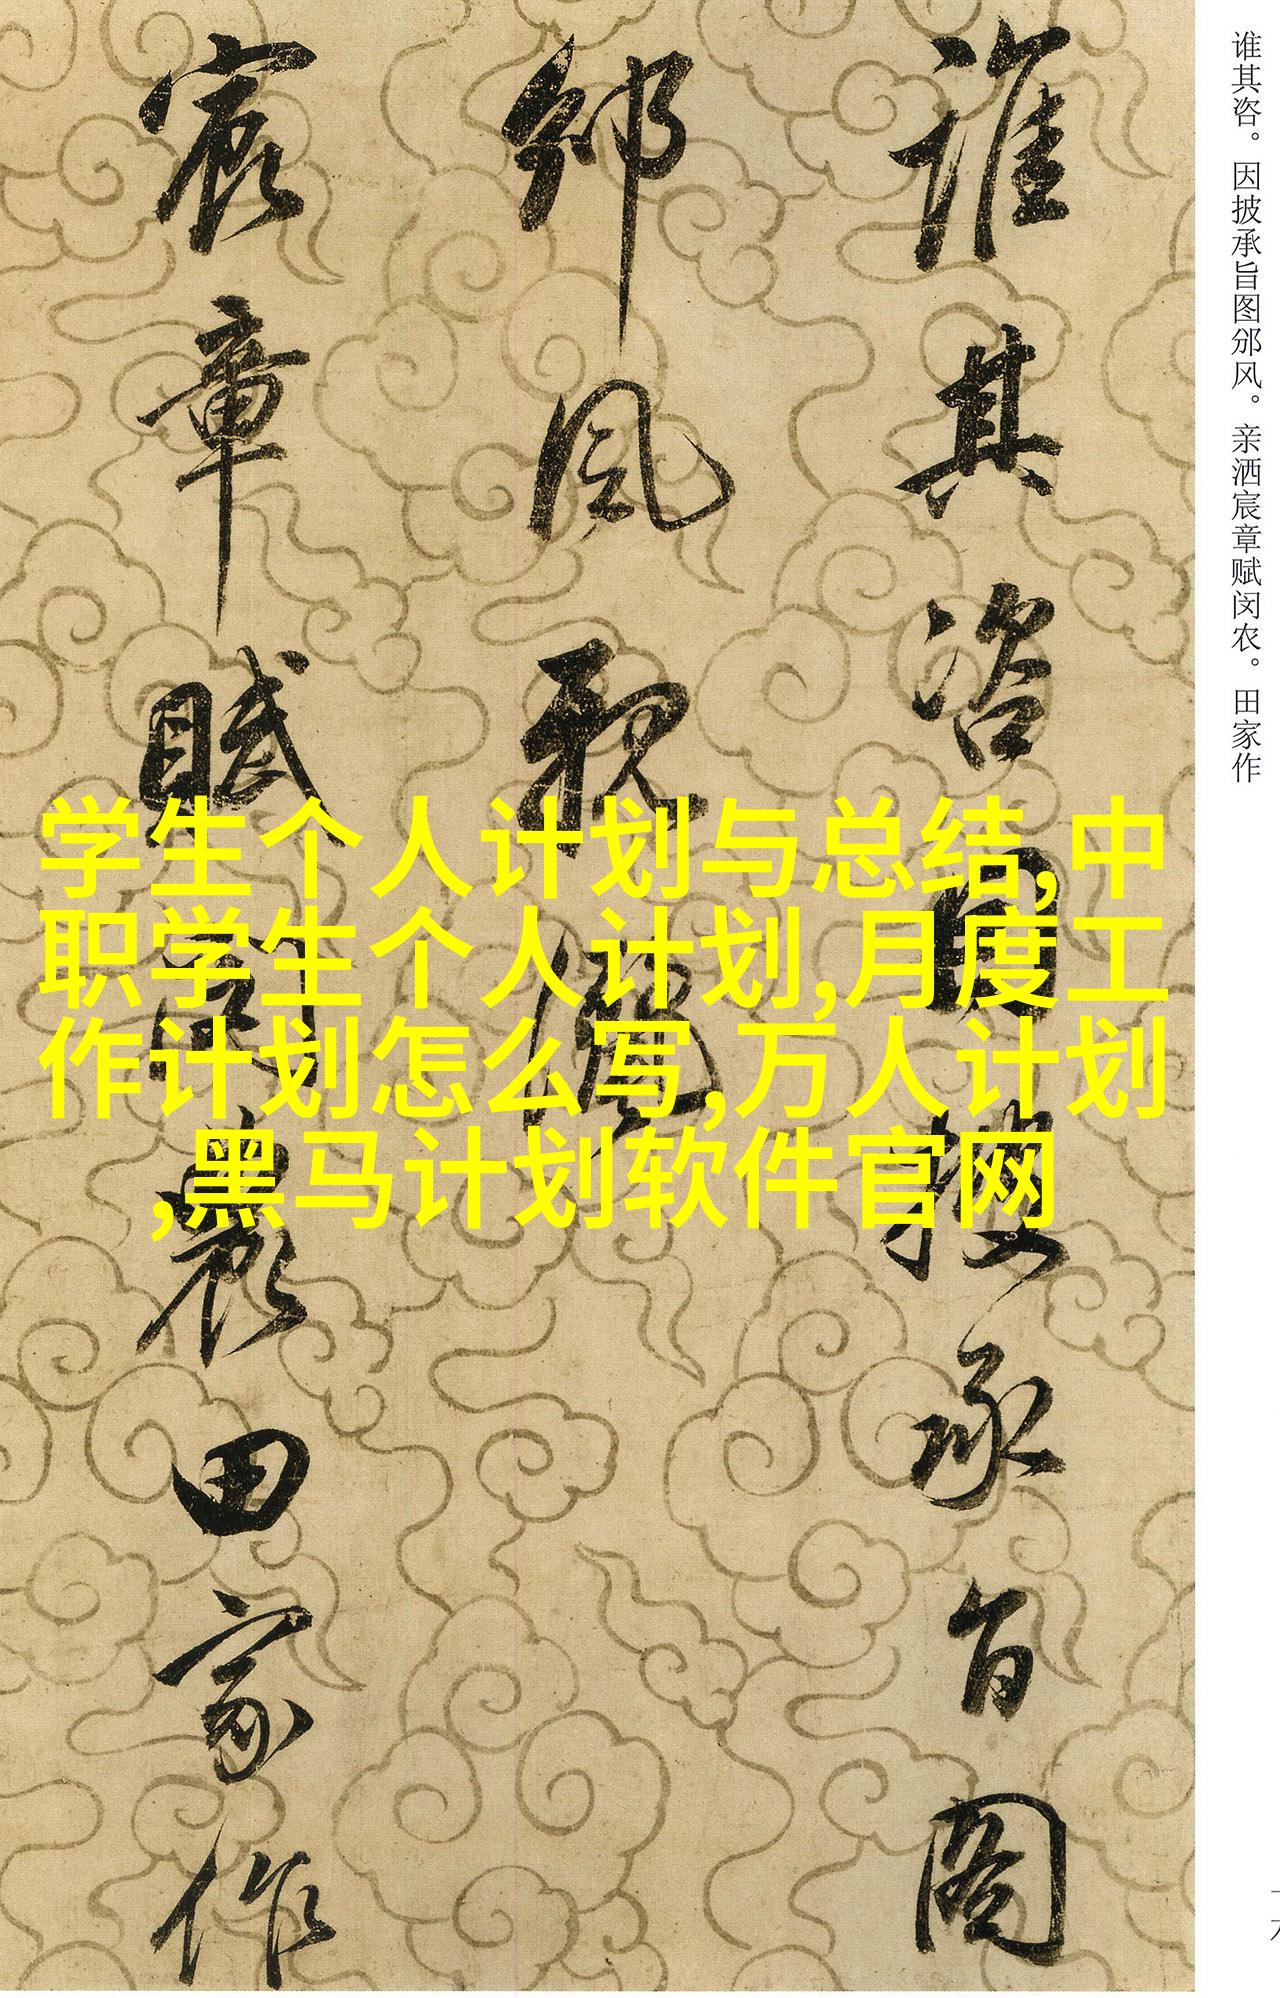 谁其咨。因披承旨图邠风。亲洒宸章赋闵农。田家作
誰其咨因披承旨圖
邠風親灑
宸章賦閔農田家作
学生个人计划与总结,中
职学生个人计划,月度工
作计划怎么写,万人计划
,黑马计划软件官网